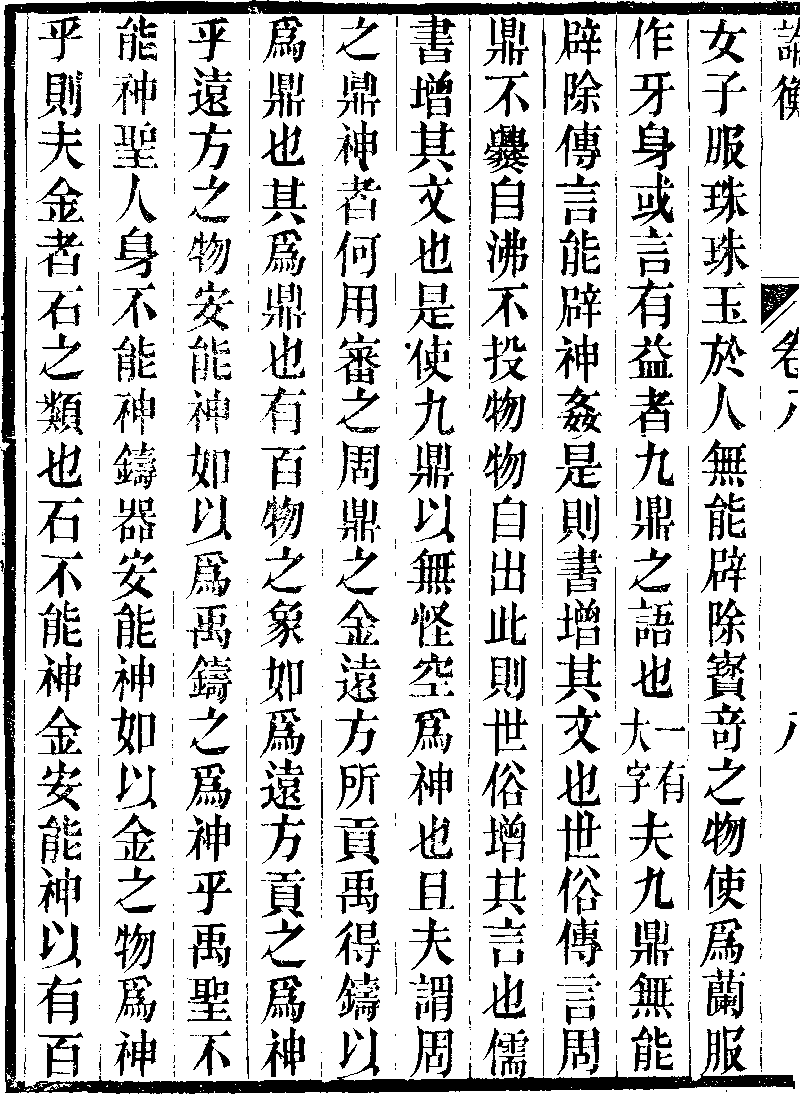 論衡 卷八 八
女子服珠珠玉於人無能辟除寳奇之物使爲蘭服
作牙身或言有益者九鼎之語也一有大字夫九鼎無能
辟除傳言能辟神姦是則書增其文也世俗傳言周
鼎不爨自沸不投物物自出此則世俗增其言也儒
書增其文也是使九鼎以無怪空爲神也且夫謂周
之鼎神者何用審之周鼎之金遠方所貢禹得鑄以
爲鼎也其爲鼎也有百物之象如爲遠方貢之爲神
乎遠方之物安能神如以爲禹鑄之爲神乎禹聖不
能神聖人身不能神鑄器安能神如以金之物爲神
乎則夫金者石之類也石不能神金安能神以有百